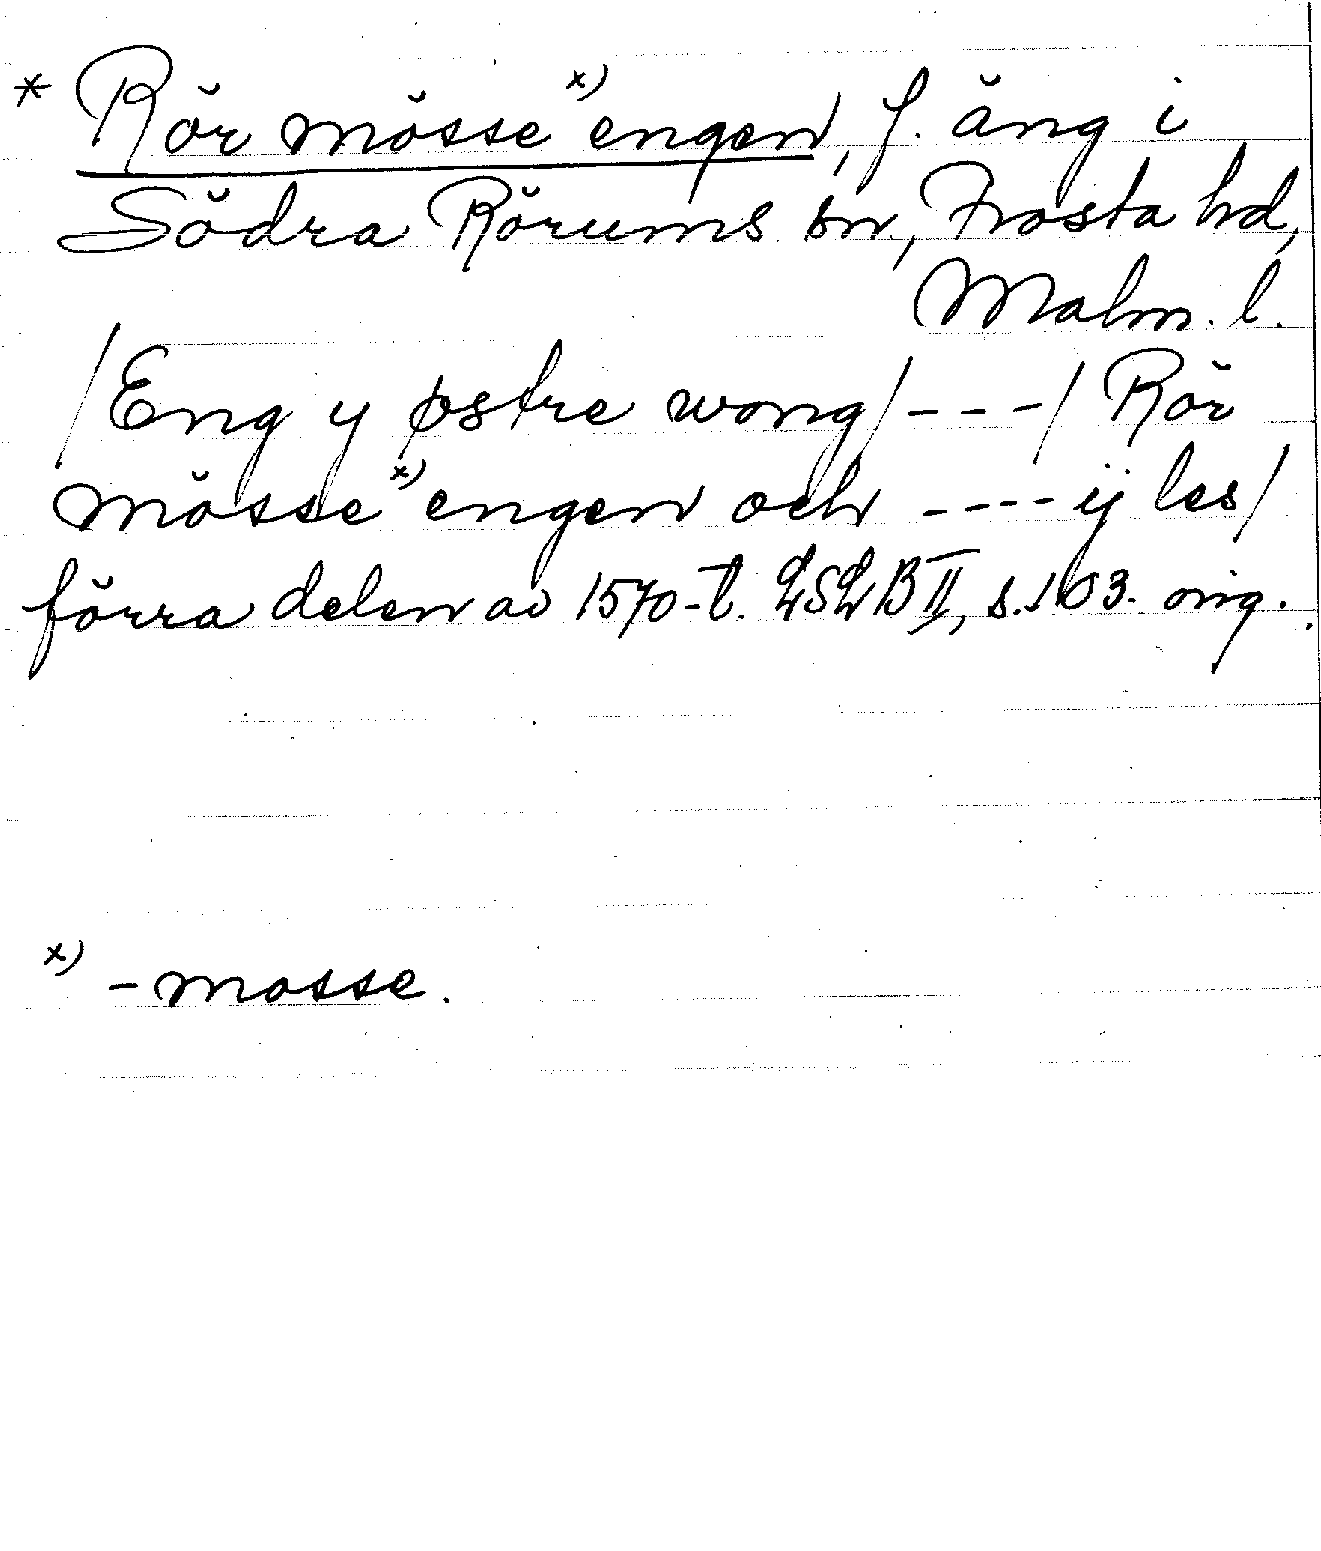 * Rör mösse x) engen, f. äng i
Södra Rörums sn, Frosta hd,
Malm. l.
/Eng y østre wong/ - - - / Rör
mösse x) engen och - - - - ij les/
förra delen av 1570-t. LSLB II, s. 103. orig.
x) - mosse.